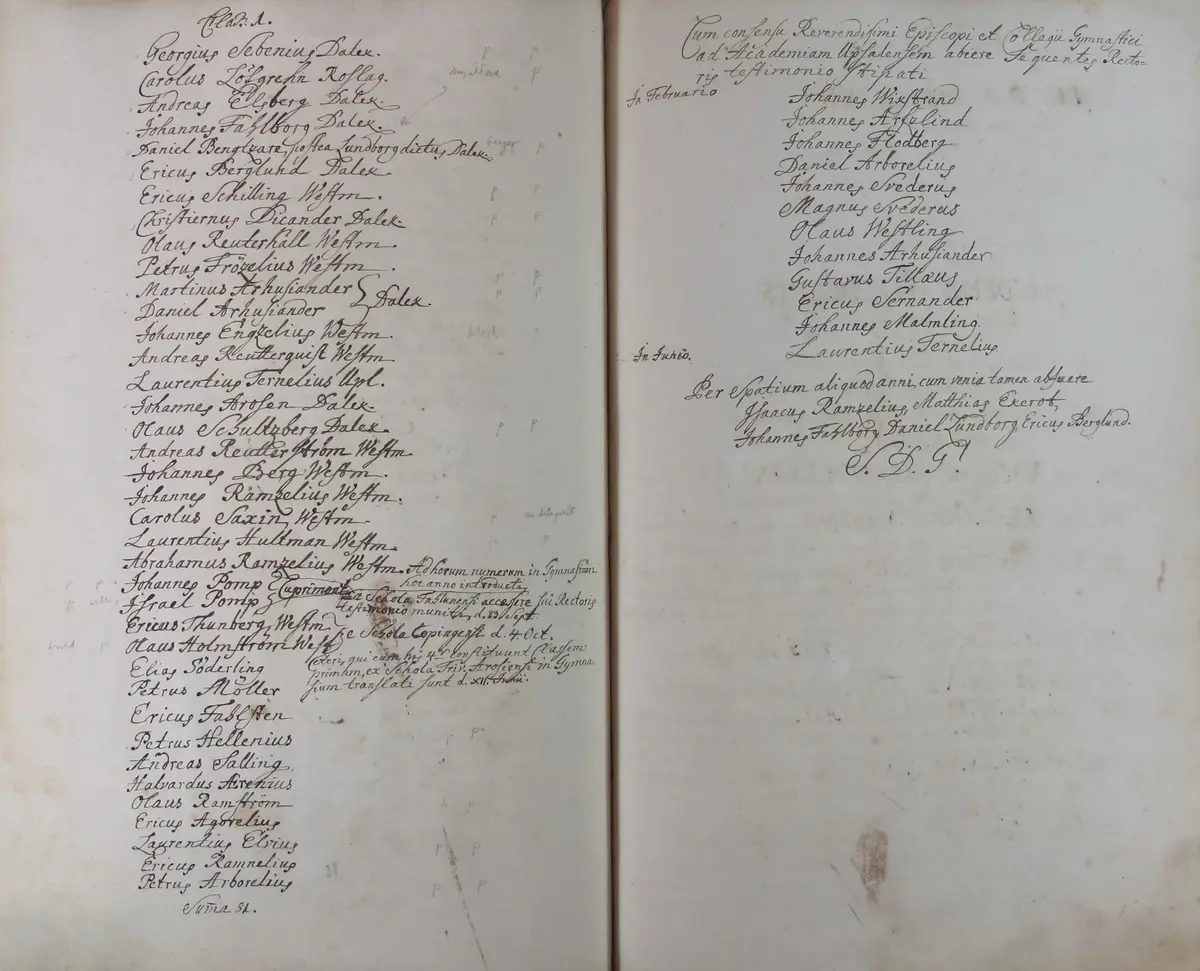 Class. 1.
Georgius Sebenius Dalek.
Carolus Löfgrehn Roslag.
Andreas Elfberg Dalek.
Johannes Fahlborg Dalek.
Daniel Bengtzare, postea Lundborg dictus Dalek.
Ericus Berglund Dalek.
Ericus Schilling Westm.
Christiernus Dicander Dalek.
Olaus Reuterhall Westm.
Petrus Frözelius Westm.
Martinus Arhusiander
Daniel Arhusiander } Dalek.
Johannes Engzelius Westm.
Andreas Reutterquist Westm.
Laurentius Ternelius Upl.
Johannes Arosen Dalek.
Olaus Schultzberg Dalek.
Andreas Reutterström Westm.
Johannes Berg Westm.
Johannes Ramzelius Westm.
Carolus Saxin Westm.
Laurentius Hultman Westm.
Abrahamus Ramzelius Westm. Ad horum numerum in Gymnasium
hoc anno introducti
Johannes Pomp
Israel Pomp } Cuprimont. e Schola Fahlunensi accessere sui Rectoris
testimonio muniti d. 13 Sept.
Ericus Thunberg Westm.
Olaus Holmström Westm. } e Schola Copingensi d. 4 Oct.
Elias Söderling
Petrus Möller
Ceteri, qui cum his 4r constituunt classem
primam, ex Schola Triv. Arosiensi in Gymna
sium translati sunt d. XII. Junii.
Ericus Fahlsten
Petrus Hellenius
Andreas Salling
Halvardus Arenius
Olaus Ramström
Ericus Agorelius
Laurentius Elvius
Ericus Ramnelius
Petrus Arborelius
Suma 81.
Cum consensu Reverendissimi Episcopi et Collegii Gymnastici
ad Academiam Upsadensem abiere sequentes Recto-
ris testimonio stipati
In Februario
Johannes Wixstrand
Johannes Artzlind
Johannes Flodberg
Daniel Arborelius
Johannes Svederus
Magnus Svederus
Olaus Westling
Johannes Arhusiander
Gustavus Tillæus
Ericus Sernander
Johannes Malmling
In Junio.
Laurentius Ternelius
Per spatium aliquod anni, cum venia tamen abfuere
Isaacus Ramzelius, Matthias Excrot,
Johannes Fahlborg Daniel Lundborg Ericus Berglund.
S. D. G!